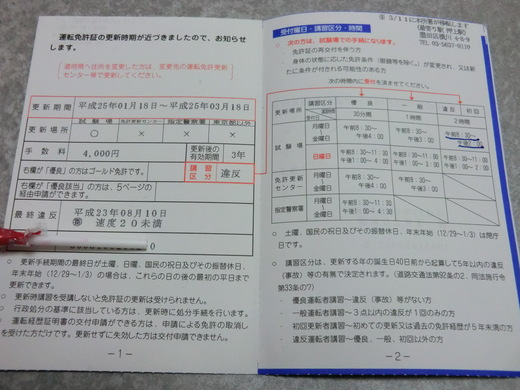 運転免許証の更新時期が近づきましたので、お知らせ
します。
道府県へ住所を変更した方は、変更先の運転免許更新
センター等で更新してください。
更新期間 平成25年01月18日~平成25年03月18日
更新場所 試験場 免許更新センター 指定警察署 東京都以外
○ × × ×
手数料 4,000円 更新後の有効期間 3年
右欄が「優良」の方はゴールド免許です。 講習区分 違反
右欄が「優良該当」の方は、5ページの
経由申請ができます。
最終違反 平成23年08月10日
速度20未満
○ 更新手続期間の最終日が土曜、日曜、国民の祝日及びその振替休日、
年末年始(12/29~1/3)の場合は、これらの日の後の最初の平日まで
更新できます。
○ 更新時講習を受講しないと免許証の更新は受けられません。
○ 行政処分の基準に該当している方は、更新時に処分手続を行います。
○ 運転経歴証明書の交付申請ができる方は、申請による免許の取消し
を受けた方だけです。更新せずに失効した方は交付申請できません。
-1-
受付曜日・講習区分・時間
(最寄り駅 押上駅)
墨田区横川 4-8-9
TEL 03-5637-0110
○ 次の方は、試験場での手続になります。
免許証の再交付を伴う方
身体の状態に応じた免許条件(眼鏡等を除く。)が変更され、又は新
たに条件が付される可能性のある方
次の時間内に受付を済ませてください。
更新場所 講習区分 優良 一般 違反 初回
30分間 1時間 2時間
試験場 月曜日~金曜日 午前8:30~午後4:00 午前8:30~
日曜日 午前8:30~11:30 午後1:00~
免許更新センター 月曜日~金曜日 午前8:30~
指定警察署 月曜日~金曜日
○ 土曜、日曜、国民の祝日及びその振替休日、年末年始(12/29~1/3)は閉庁
日です。
○ 講習区分は、更新する年の誕生日40日前から起算して5年以内の違反
(事故)等の有無で決定されます。(道路交通法第92条の2、同法施行令
第33条の7)
・優良運転者講習~違反(事故)等がない方
・一般運転者講習~3点以内の違反が1回のみの方
・初回更新者講習~初めての更新又は過去の免許経歴が5年未満の方
・違反運転者講習~優良、一般、初回以外の方
-2-